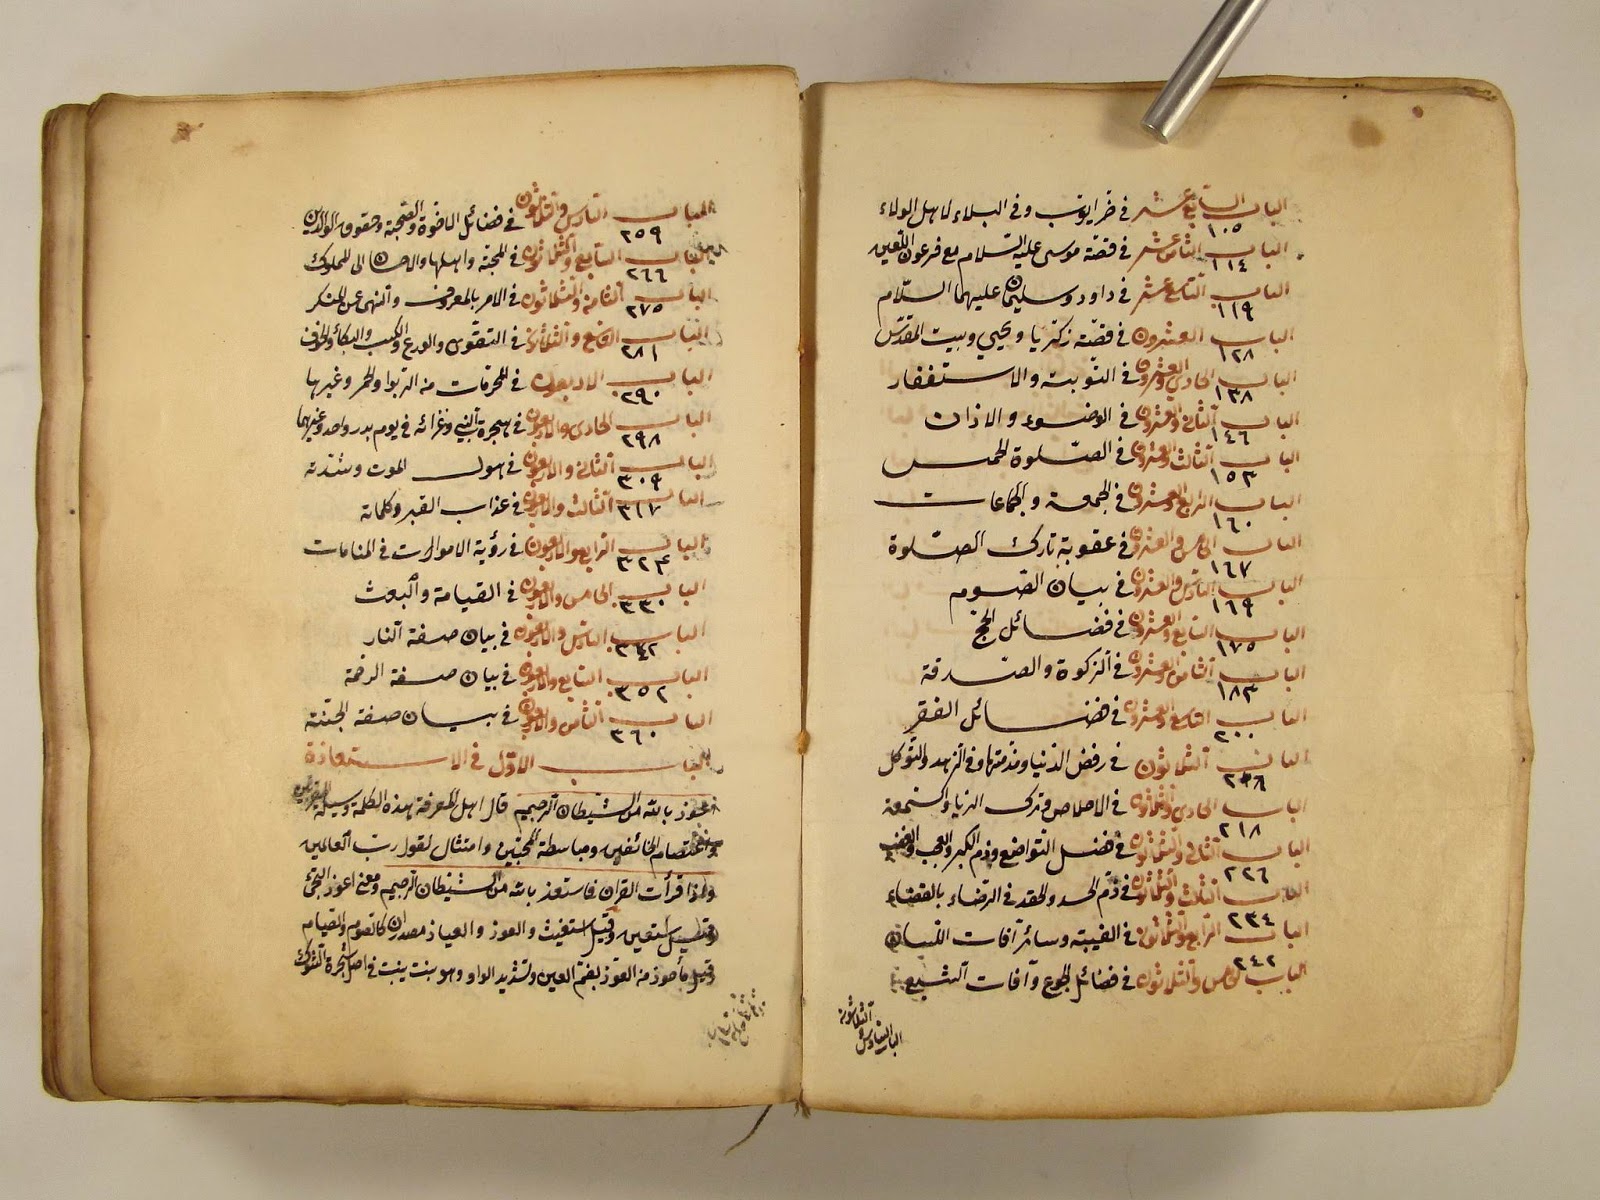 الباب السابع عشر في ضر ايوب وفي البلاء لاهل الولاء
١٠٥
الباب الثامن عشر في قصة موسى عليه السلام مع فرعون اللعين
١١٤
الباب التاسع عشر في داود وسليمان عليهما السلام
١١٩
الباب العشرون في قصة زكريا ويحيي وبيت المقدس
١٢٨
الباب الحادي والعشرون في التوبة والاستغفار
١٣٨
الباب الثاني والعشرون في الوضوء والاذان
١٤٦
الباب الثالث والعشرون في الصلوة الخمس
١٥٣
الباب الرابع والعشرون في الجمعة والجماعات
١٦٠
الباب الخامس والعشرون في عقوبة تارك الصلوة
١٦٧
الباب السادس والعشرون في بيان الصوم
١٦٩
الباب السابع والعشرون في فضائل الحج
١٧٥
الباب الثامن والعشرون في الزكوة والصدقة
١٨٣
الباب التاسع والعشرون في فضائل الفقر
٢٠٠
الباب الثلاثون في رفض الدنيا ومذمتها وفي الزهد والتوكل
الباب الحادي والثلاثون في الاخلاص وترك الرياء والسمعة
٢١٨
الباب الثاني والثلاثون في فضل التواضع وذم الكبر والعجب والغضب
٢٢٦
الباب الثالث والثلاثون في ذم الحسد والحقد في الرضاء بالقضاء
٢٣٤
الباب الرابع والثلاثون في الغيبة وسائر آفات اللسان
٢٤٢
الباب الخامس والثلاثون في فضائل الجوع وآفات الشبع
الباب السادس والثلاثون
الباب السادس والثلاثون في فضائل الاخوة والصحبة وحقوق الوالدين
٢٥٩
الباب السابع والثلاثون في المحبة واهلها والاحسان الى المملوك
٢٦٦
الباب الثامن والثلاثون في الامر بالمعروف والنهي عن المنكر
٢٧٥
الباب التاسع والثلاثون في التقوى والورع والكسب والبكاء والخوف
٢٨١
الباب الاربعون في المحرمات من الربوا والخمر وغيرها
٢٩٠
الباب الحادي والاربعون في هجرة النبي وغزائه في يوم بدر واحد وغيرهما
٢٩٨
الباب الثاني والاربعون في هول الموت وشدته
٣٠٩
الباب الثالث والاربعون في عذاب القبر وكلماته
٣١٧
الباب الرابع والاربعون في رؤية الاموات في المنامات
٣٢٤
الباب الخامس والاربعون في القيامة والبعث
٣٣٠
الباب السادس والاربعون في بيان صفة النار
٣٤٢
الباب السابع والاربعون في بيان صفة الرحمة
٣٥٢
الباب الثامن والاربعون في بيان صفة الجنة
٣٦٠
الباب الاول في الاستعاذة
اعوذ بالله من الشيطان الرجيم قال اهل المعرفة هذه الكلمة وسيلة المتقربين
واعتصام الخائفين ومباسطة المحبين وامتثال لقول رب العالمين
واذا قرأت القران فاستعذ بالله من الشيطان الرجيم ومعنى اعوذ التجئ
وقيل استعين وقيل استغيث والعوذ والعياذ مصدران كالصوم والصيام
وقيل مأخوذ من العوذ بضم العين وتشديد الواو وهو نبت ينبت في اصل شجرة الشوك